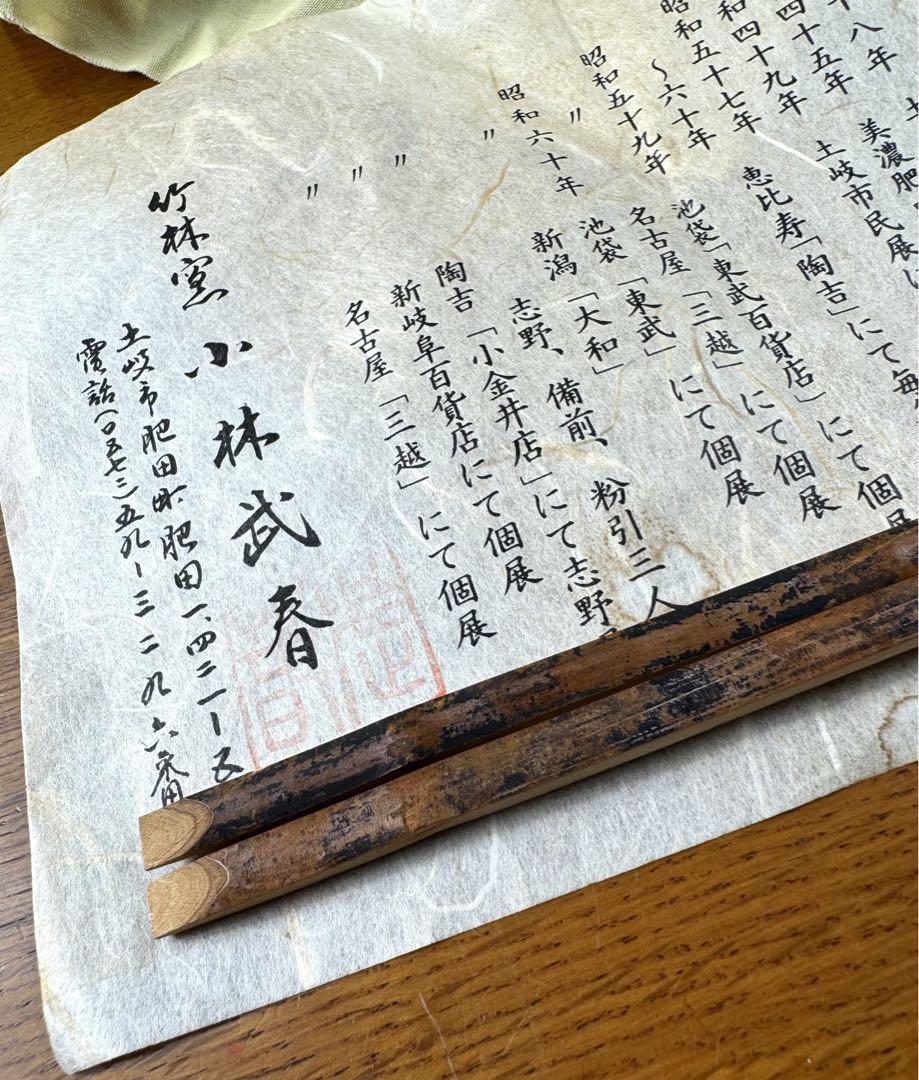 十八年　土
四十五年　美濃肥
和四十九年　土岐市民展に
昭和五十七年
〜六十年　恵比寿「陶吉」にて毎
昭和五十九年　池袋「東武百貨店」にて個展
〃　名古屋「三越」にて個展
昭和六十年　池袋「東武」にて個展
〃　新潟「大和」
志野、備前、粉引三人
〃　陶吉「小金井店」にて志野
〃　新岐阜百貨店にて個展
〃　名古屋「三越」にて個展
竹林窯　小林武春
土岐市肥田町肥田一、四二一ー五
電話(〇五七二)五九ー三二九六番